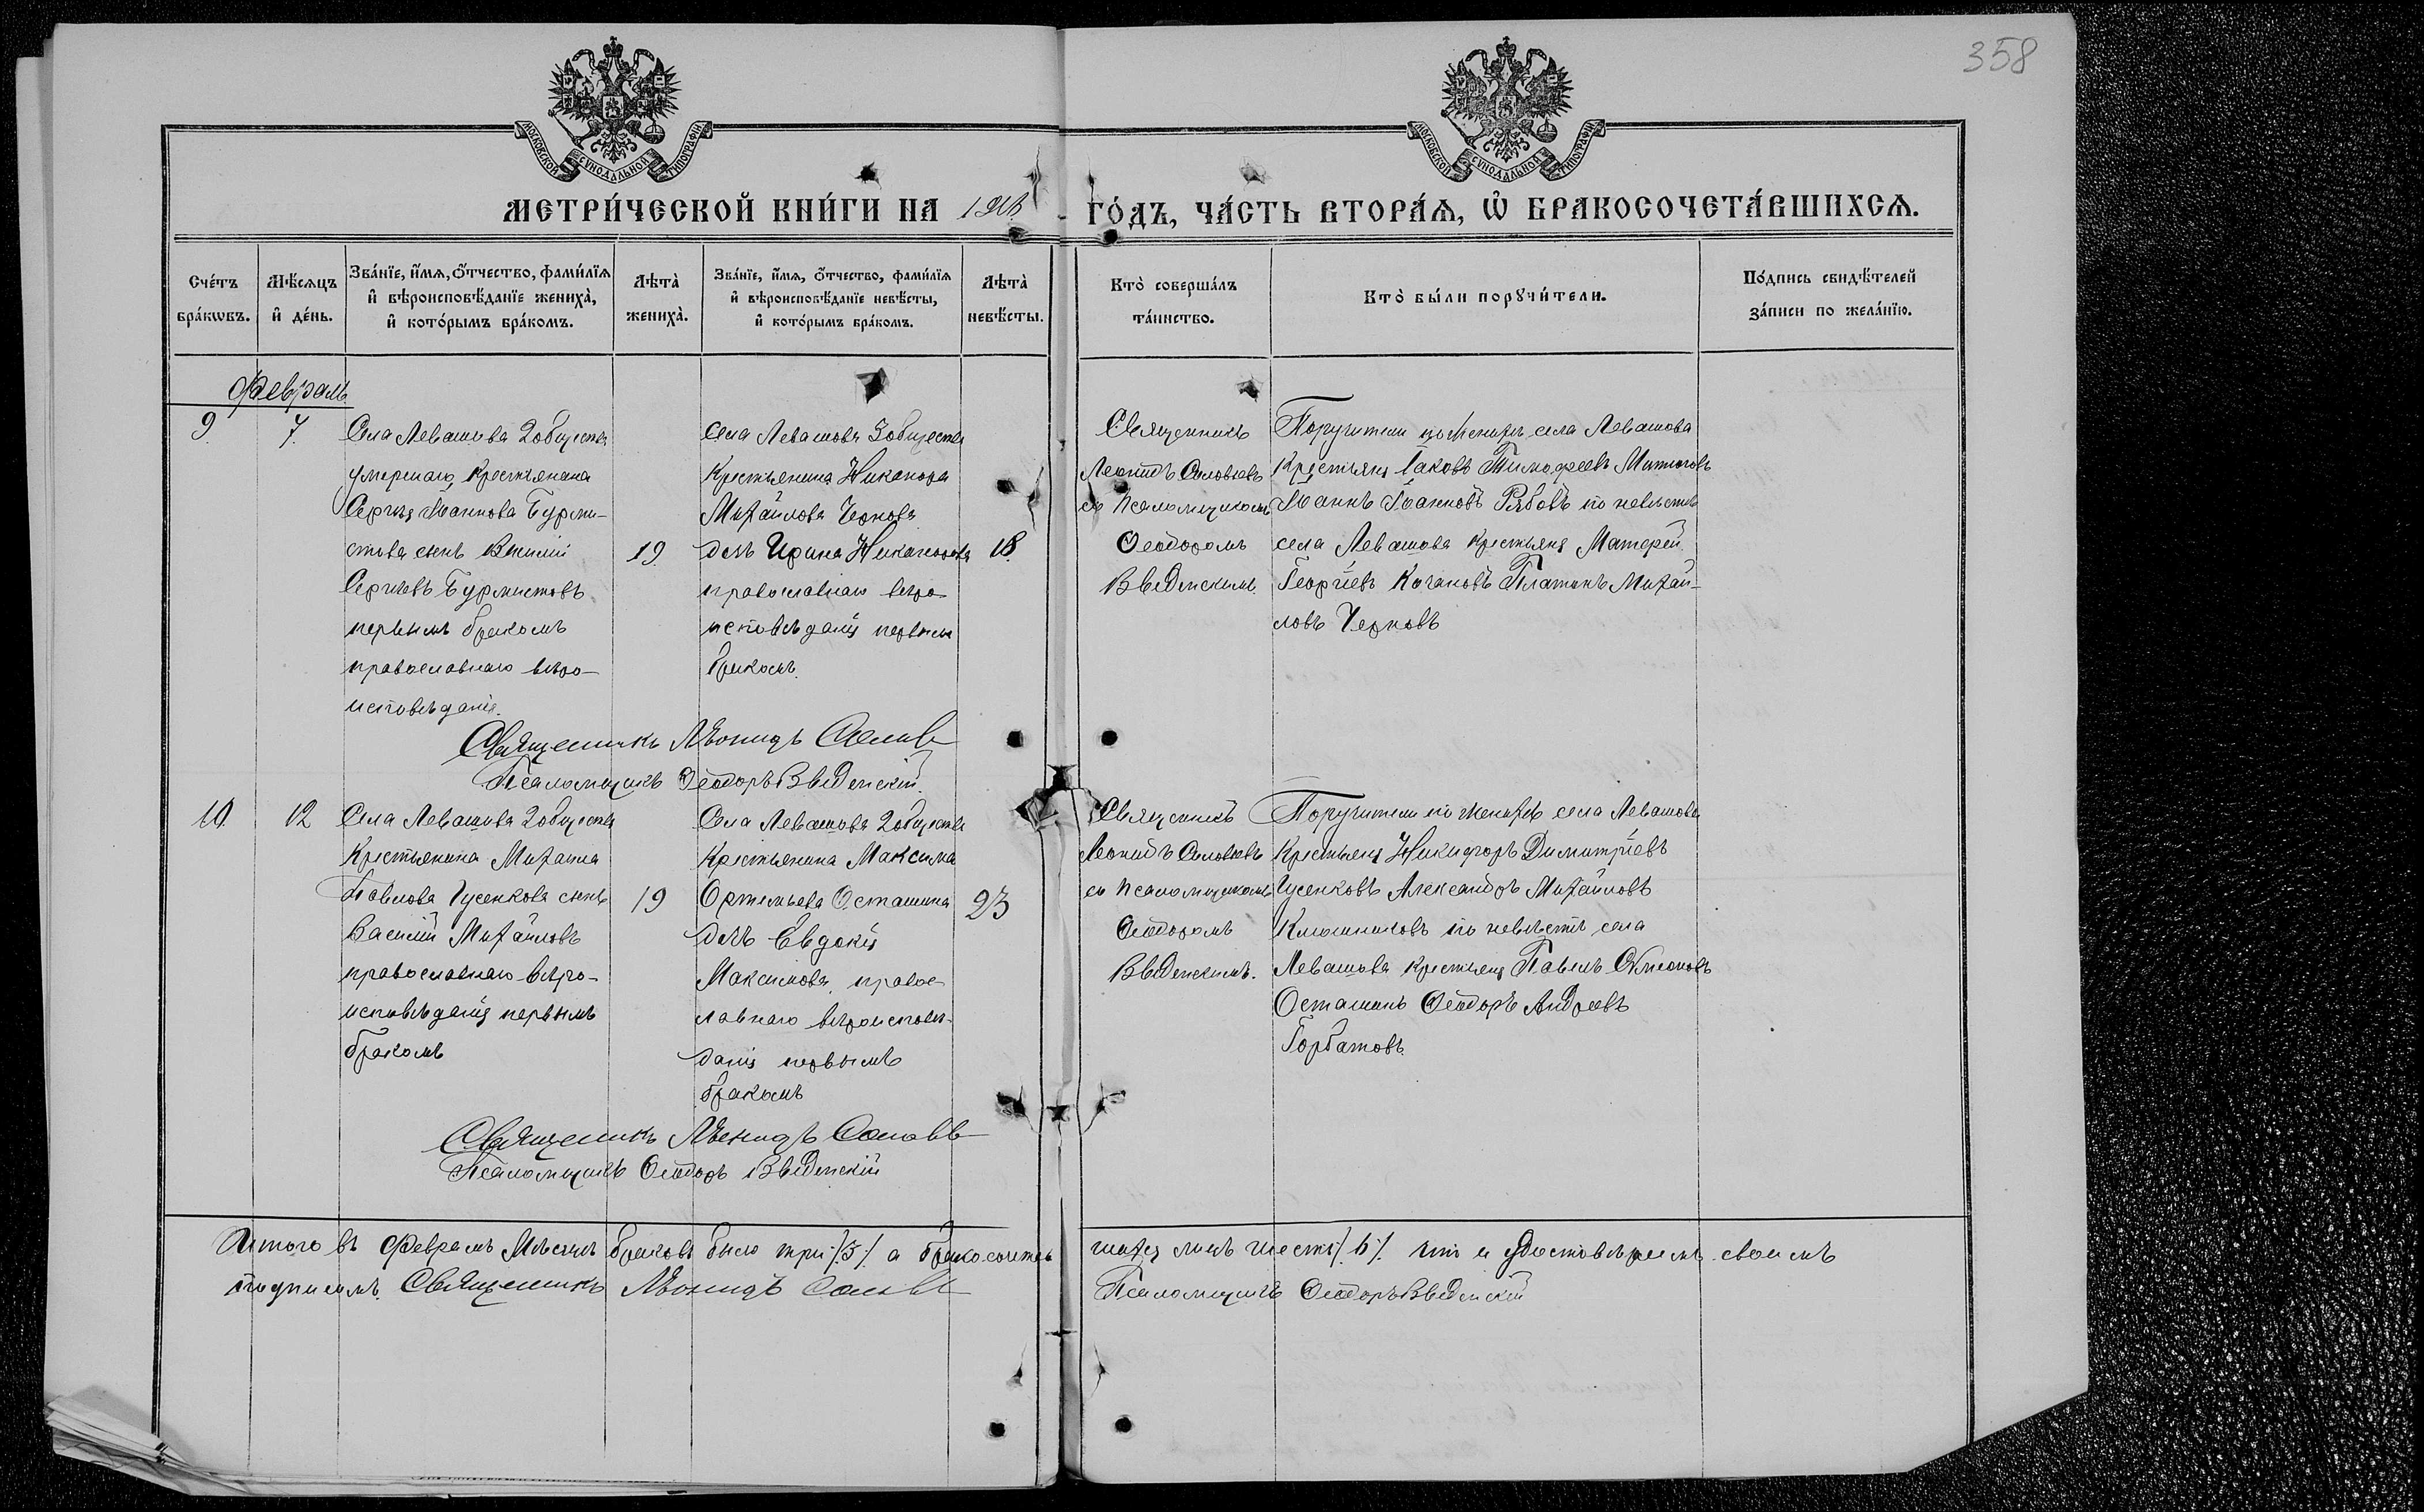 358
МОСКОВСКОЙ СѴНОДАЛЬНОЙ ТИПОГРАФІИ
МОСКОВСКОЙ СѴНОДАЛЬНОЙ ТИПОГРАФІИ
МЕТРИ́ЧЕСКОЙ КНИ́ГИ НА
ГО́ДЪ, ЧА́СТЬ ВТОРА́Ѧ, Ѡ҆ БРАКОСОЧЕТА́ВШИХСѦ.
Сче́тъ
бра́кѡвъ.
Мѣ́сѧцъ
и҆ де́нь.
Зва́нїе, и҆́мѧ, ѻ҆́тчество, фами́лїѧ
и҆ вѣроисповѣ́данїе жениха̀,
и҆ кото́рымъ бра́комъ.
Лѣта̀
жениха̀.
Зва́нїе, и҆́мѧ, ѻ҆́тчество, фами́лїѧ
и҆ вѣроисповѣ́данїе невѣ́сты,
и҆ кото́рымъ бра́комъ.
Лѣта̀
невѣ́сты.
Кто̀ соверша́лъ
та́инство.
Кто̀ бы́ли порꙋчи́тели.
По́дпись свидѣ́телей
за́писи по жела́нїю.
Февраль
9.
7.
Села Левашова 2 общества
умершаго Крестьянина
Сергія Іоаннова Бурми-
строва сынъ
Сергіевъ Бурмистовъ
первымъ бракомъ
православнаго вѣро-
исповѣданія.
19
Села Левашова 3 общества
Крестьянина Никанора
Михайлова Чернова
дочь Ирина Никанорова
православнаго вѣро-
исповѣданія первымъ
бракомъ.
18.
Священникъ
Леонидъ Соловьевъ
съ Псаломщикомъ
Ѳеодоромъ
Введенскимъ.
Поручители по женихѣ села Левашова
Крестьяне Іаковъ Тимофеевъ
Іоаннъ Іоанновъ Рябовъ по невѣстѣ
села Левашова Крестьяне Матѳей
Георгіевъ Качановъ Платонъ Михай-
ловъ Черновъ
Священникъ Леонидъ Соловьевъ
Псаломщикъ Ѳеодоръ Введенскій.
10.
12
Села Левашова 2 общества
Крестьянина Михаила
Павлова Гусенкова сынъ
Василій Михайловъ
православнаго вѣро-
исповѣданія первымъ
бракомъ
19
Села Левашова 2 общества
Крестьянина Максима
Артемьева Осташина
дочь Евдокія
Максимова, правос-
лавнаго вѣроисповѣ-
данія первымъ
бракомъ
23
Священникъ
Леонидъ Соловьевъ
съ Псаломщикомъ
Ѳеодоромъ
Введенскимъ.
Поручители по женихѣ села Левашова
Крестьяне Никифоръ Димитріевъ
Гусенковъ Александръ Михайловъ
Клюшниковъ по невѣстѣ села
Левашова Крестьяне Павелъ Симеоновъ
Осташинъ Ѳеодоръ Андреевъ
Горбатовъ.
Священникъ Леонидъ Соловьевъ
Псаломщикъ Ѳеодоръ Введенскій
Итого въ Февралѣ Мѣсяцѣ браковъ было три /3/ а бракосочетав
шихся лицъ шесть /6/ что и удостовѣряемъ своимъ
подписомъ. Священникъ Леонидъ Соловьевъ
Псаломщикъ Ѳеодоръ Введенскій